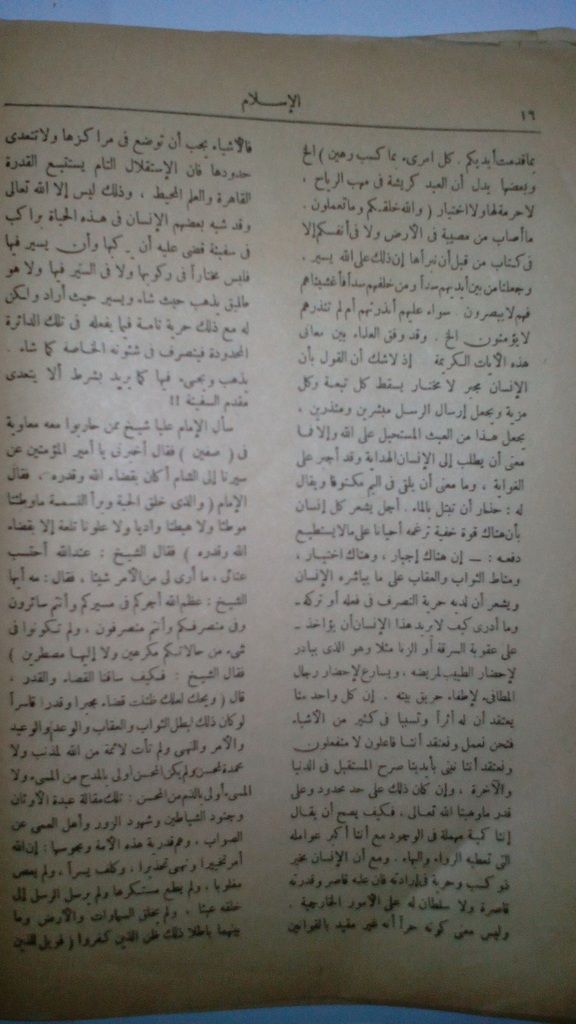 ١٦
الإسلام
بما قدمت أيديكم . كل امرىء بما كسب رهين ) الخ
وبعضها يدل أن العبد كريشة فى مهب الرياح ،
لا حرمة لها ولا اختيار ( والله خلقكم وما تعملون .
ما أصاب من مصيبة فى الأرض ولا فى أنفسكم إلا
فى كتاب من قبل أن نبرأها إن ذلك على الله يسير .
وجعلنا من بين أيديهم سداً ومن خلفهم سداً فأغشيناهم
فهم لا يبصرون . سواء عليهم أنذرتهم أم لم تنذرهم
لا يؤمنون الخ . وقد وفق العلماء بين معانى
هذه الآيات الكريمة إذ لا شك أن القول بأن
الإنسان مجبر لا مختار يسقط كل تبعة وكل
مزية ويجعل إرسال الرسل مبشرين ومنذرين ،
يجعل هذا من العبث المستحيل على الله وإلا فما
معنى أن يطلب إلى الإنسان الهداية وقد أجبر على
الغواية ، وما معنى أن يلقى فى اليم مكتوفا ويقال
له : حذار أن تبتل بالماء . أجل يشعر كل إنسان
بأن هناك قوة خفية ترغمه أحيانا على مالا يستطيع
دفعه : ــ إن هناك إجبار ، وهناك اختيار ،
ومناط الثواب والعقاب على ما يباشره الإنسان
ويشعر أن لديه حرية التصرف فى فعله أو تركه ــ
وما أدرى كيف لا يريد هذا الإنسان أن يؤاخذ ــ
على عقوبة السرقة أو الزنا مثلا وهو الذى يبادر
لإحضار الطبيب لمريضه ، ويسارع لإحضار رجال
المطافىء لإطفاء حريق بيته . إن كل واحد منا
يعتقد أن له أثراً ونسبيا فى كثير من الأشياء
فنحن نعمل ونعتقد أننا فاعلون لا منفعلون
ونعتقد أننا نبنى بأيدينا صرح المستقبل فى الدنيا
والآخرة ، وإن كان ذلك على حد محدود وعلى
قدر ما وهبنا الله تعالى ، فكيف يصح أن يقال
إننا كمية مهملة فى الوجود مع أننا أكبر عوامله
التى تعطيه الرواء والبهاء . ومع أن الإنسان مخير
ذو كسب وحرية فى إرادته فان علمه قاصر وقدرته
قاصرة ولا سلطان له على الأمور الخارجية .
وليس معنى كونه حراً أنه غير مقيد بالقوانين
فالأشياء يجب أن توضع فى مراكزها ولا تتعدى
حدودها فان الإستقلال التام يستتبع القدرة
القاهرة والعلم المحيط ، وذلك ليس إلا الله تعالى
وقد شبه بعضهم الإنسان فى هذه الحياة براكب
فى سفينة قضى عليه أن يركبها وأن يسير فيها
فليس مختاراً فى ركوبها ولا فى السير فيها ولا هو
طليق يذهب حيث شاء ويسير حيث أراد ولكن
له مع ذلك حرية تامة فيما يفعله فى تلك الدائرة
المحدودة فيتصرف فى شئونه الخاصة كما شاء .
يذهب ويجىء فيها كما يريد بشرط ألا يتعدى
مقدم السفينة !!
سأل الإمام عليا شيخ ممن حاربوا معه معاوية
فى ( صفين ) فقال أخبرنى يا أمير المؤمنين عن
سيرنا إلى الشام أكان بقضاء الله وقدره . فقال
الإمام ( والذى خلق الحبة وبرأ النسمة ما وطئنا
موطئا ولا هبطنا واديا ولا علونا تلعة إلا بقضاء
الله وقدره ) فقال الشيخ : عند الله أحتسب
عنائى ، ما أرى لى من الأمر شيئا . فقال : مه أيها
الشيخ : عظم الله أجركم فى مسيركم وأنتم سائرون
وفى منصرفكم وأنتم منصرفون ، ولم تكونوا فى
شىء من حالاتكم مكرهين ولا إليها مضطرين )
فقال الشيخ : فكيف ساقنا القضاء والقدر ،
قال ( ويحك لعلك ظننت قضاء مجبرا وقدرا قاسراً
لو كان ذلك لبطل الثواب والعقاب والوعد والوعيد
والأمر والنهى ولم تأت لائمة من الله لمذنب ولا
محمدة لمحسن ولم يكن المحسن أولى بالمدح من المسىء ولا
المسىء أولى بالذم من المحسن : تلك مقالة عبدة الأوثان
وجنود الشياطين وشهود الزور وأهل العمى عن
الصواب ، وهم قدرية هذه الأمة ومجوسها : إن الله
أمر تخييرا ونهى تحذيرا ، وكلف يسراً ، ولم يعص
مغلوبا ، ولم يطع مستكرها ولم يرسل الرسل إلى
خلقه عبثا . ولم يخلق السماوات والأرض وما
بينهما باطلا ذلك ظن الذين كفروا ( فويل للذين